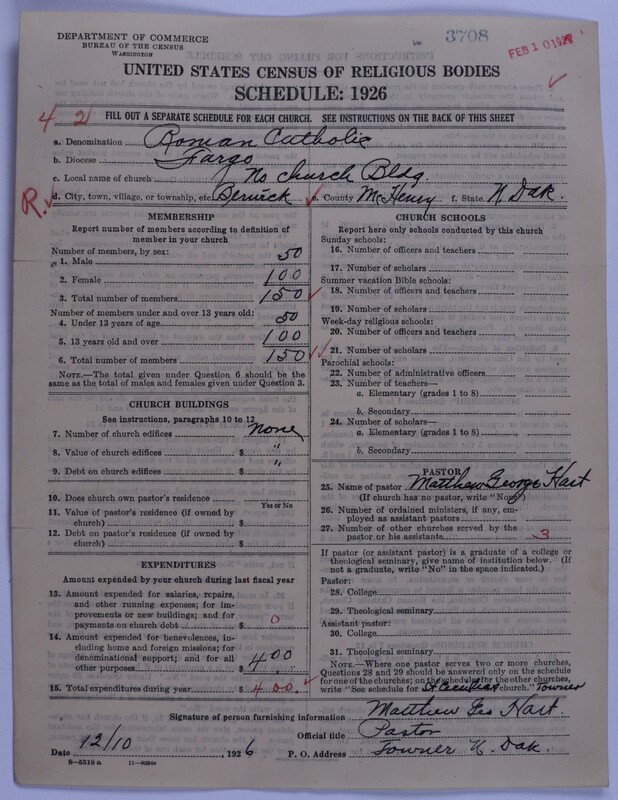 DEPARTMENT OF COMMERCE
BUREAU OF THE CENSUS
WASHINGTON
3708
FEB 10 1927
UNITED STATES CENSUS OF RELIGIOUS BODIES
SCHEDULE: 1926
4 2
FILL OUT A SEPARATE SCHEDULE FOR EACH CHURCH. SEE INSTRUCTIONS ON THE BACK OF THIS SHEET
a. Denomination Roman Catholic
b. Diocese Fargo
c. Local name of church No church Bldg.
R. d. City, town, village, or township, etc. Berwick e. County McHenry f. State N. Dak.
MEMBERSHIP
Report number of members according to definition of
member in your church
Number of members, by sex:
1. Male 50
2. Female 100
3. Total number of members 150
Number of members under and over 13 years old:
4. Under 13 years of age 50
5. 13 years old and over 100
6. Total number of members 150
NOTE.—The total given under Question 6 should be
same as the total of males and females given under Question 3.
CHURCH BUILDINGS
See instructions, paragraphs 10 to 12
7. Number of church edifices none
8. Value of church edifices $ "
9. Debt on church edifices $ "
10. Does church own pastor's residence
Yes or No
11. Value of pastor's residence (if owned by
church) $
12. Debt on pastor's residence (if owned by
church) $
EXPENDITURES
Amount expended by your church during last fiscal year
13. Amount expended for salaries, repairs,
and other running expenses; for im-
provements or new buildings; and for
payments on church debt $ 0
14. Amount expended for benevolences,
including home and foreign missions; for
denominational support; and for all
other purposes $ 400
15. Total expenditures during year $ 400.
CHURCH SCHOOLS
Report here only schools conducted by this church
Sunday schools:
16. Number of officers and teachers
17. Number of scholars
Summer vacation Bible schools:
18. Number of officers and teachers
19. Number of scholars
Week-day religious schools:
20. Number of officers and teachers
21. Number of scholars
Parochial schools:
22. Number of administrative officers
23. Number of teachers—
a. Elementary (grades 1 to 8)
b. Secondary
24. Number of scholars—
a. Elementary (grades 1 to 8)
b. Secondary
PASTOR
25. Name of pastor Matthew George Hart
(If church has no pastor, write "None")
26. Number of ordained ministers, if any, em-
ployed as assistant pastors
27. Number of other churches served by the
pastor or his assistants 3
If pastor (or assistant pastor) is a graduate of a college or
theological seminary, give name of institution below. (If
not a graduate, write "No" in the space indicated.)
Pastor:
28. College
29. Theological seminary
Assistant pastor:
30. College
31. Theological seminary
NOTE.—Where one pastor serves two or more churches,
Questions 28 and 29 should be answered only on the schedule
for one of the churches; on the schedules for the other churches,
write "See schedule for St Cecelias church." Towner
Signature of person furnishing information Matthew Geo Hart
Official title Pastor
Date 12/10, 1926 P. O. Address Towner N. Dak.
8—5518 a